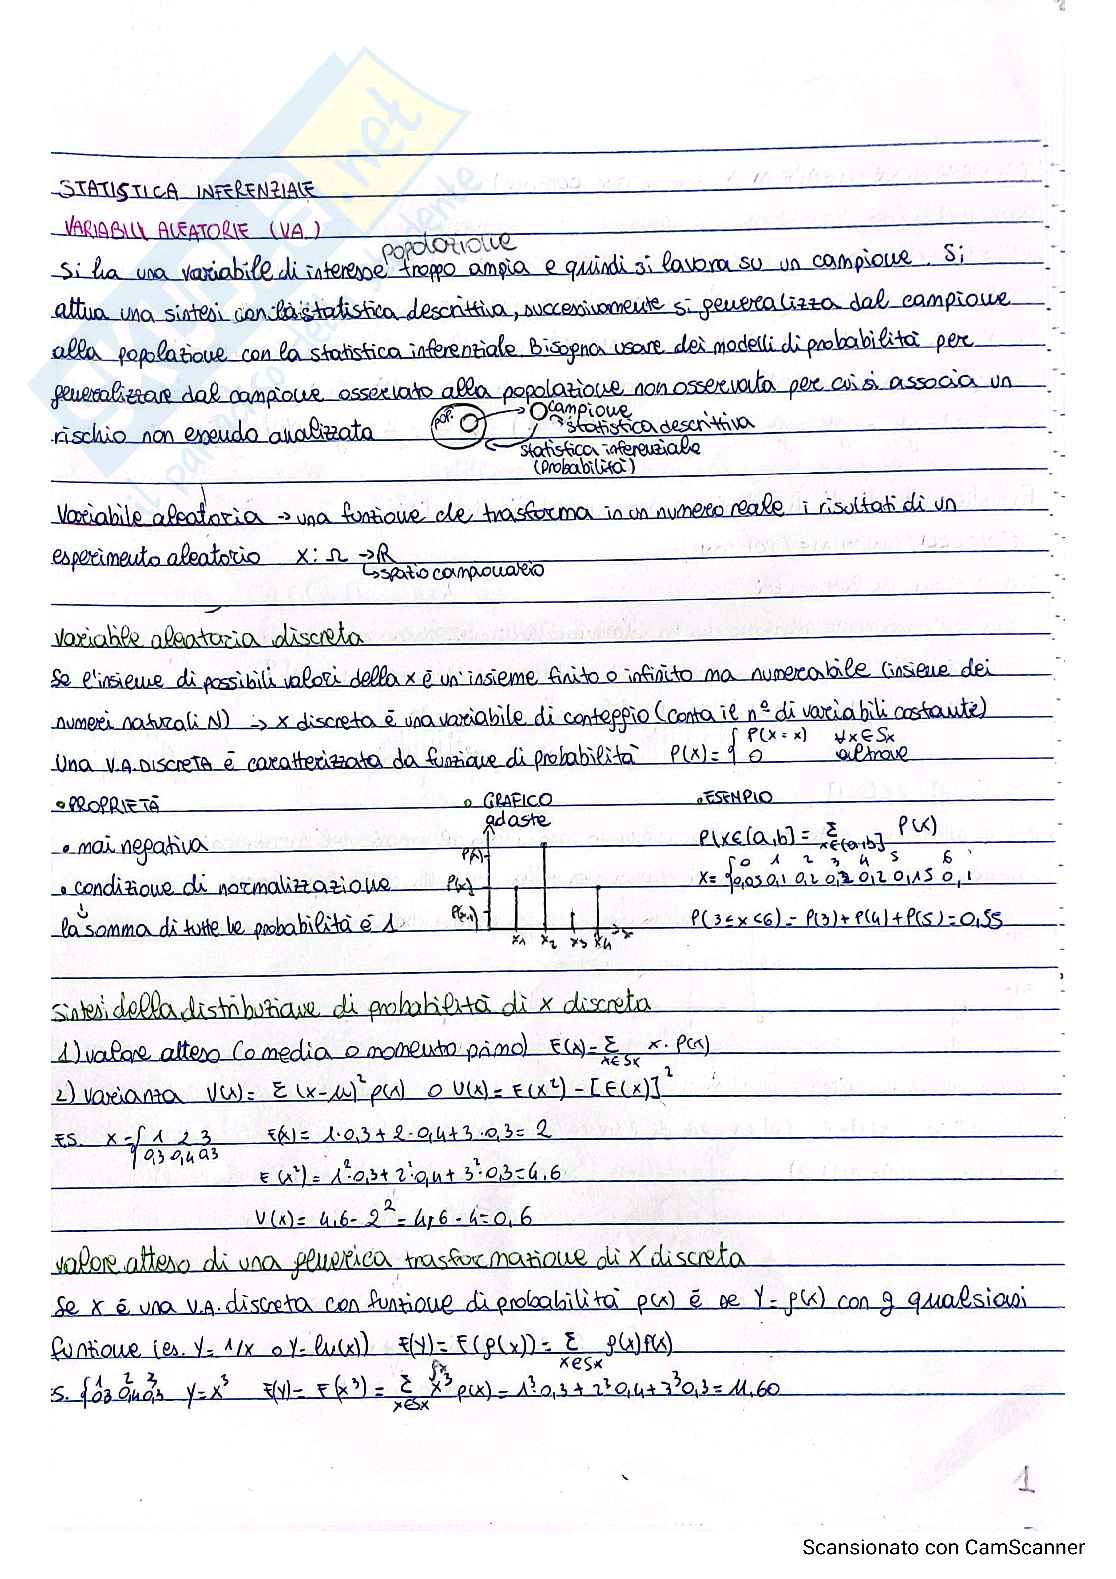 STATISTICA INFERENZIALE
VARIABILI ALEATORIE (V.A.)
popolazione
Si ha una variabile di interesse troppo ampia e quindi si lavora su un campione. Si
attua una sintesi con la statistica descrittiva, successivamente si generalizza dal campione
alla popolazione con la statistica inferenziale. Bisogna usare dei modelli di probabilità per
generalizzare dal campione osservato alla popolazione non osservata per cui si associa un
rischio non essendo analizzata
pop. campione
statistica descrittiva
statistica inferenziale
(probabilità)
Variabile aleatoria → una funzione che trasforma in un numero reale i risultati di un
esperimento aleatorio X: Ω → R
↳ spazio campionario
variabile aleatoria discreta
Se l'insieme di possibili valori della x è un'insieme finito o infinito ma numerabile (insieme dei
numeri naturali N) → x discreta è una variabile di conteggio (conta il nº di variabili costante)
Una V.A. DISCRETA è caratterizzata da funzione di probabilità P(x) = { P(X = x) ∀x∈Sx
0 altrove
• PROPRIETÀ • GRAFICO • ESEMPIO
ad aste
• mai negativa P(x∈(a,b] = Σ x∈(a,b] P(x)
• condizione di normalizzazione X = { 0 1 2 3 4 5 6
0,05 0,1 0,2 0,2 0,2 0,15 0,1
la somma di tutte le probabilità è 1 P(3≤x<6) = P(3) + P(4) + P(5) = 0,55
x1 x2 x3 x4 x
sintesi della distribuzione di probabilità di x discreta
1) valore atteso (o media o momento primo) E(x) = Σ x∈Sx x · P(x)
2) varianza V(x) = Σ (x-μ)² p(x) o V(x) = E(x²) - [E(x)]²
ES. X = { 1 2 3 E(x) = 1·0,3 + 2·0,4 + 3·0,3 = 2
0,3 0,4 0,3
E(x²) = 1²·0,3 + 2²·0,4 + 3²·0,3 = 4,6
V(x) = 4,6 - 2² = 4,6 - 4 = 0,6
valore atteso di una generica trasformazione di X discreta
Se X è una V.A. discreta con funzione di probabilità p(x) è se Y = g(x) con g qualsiasi
funzione (es. Y = 1/x o Y = ln(x)) E(Y) = E(g(x)) = Σ x∈Sx g(x)P(x)
S. { 1 2 3 Y = X³ E(Y) = E(x³) = Σ x∈Sx x³ p(x) = 1³0,3 + 2³0,4 + 3³0,3 = 11,60
0,3 0,4 0,3
1
Scansionato con CamScanner